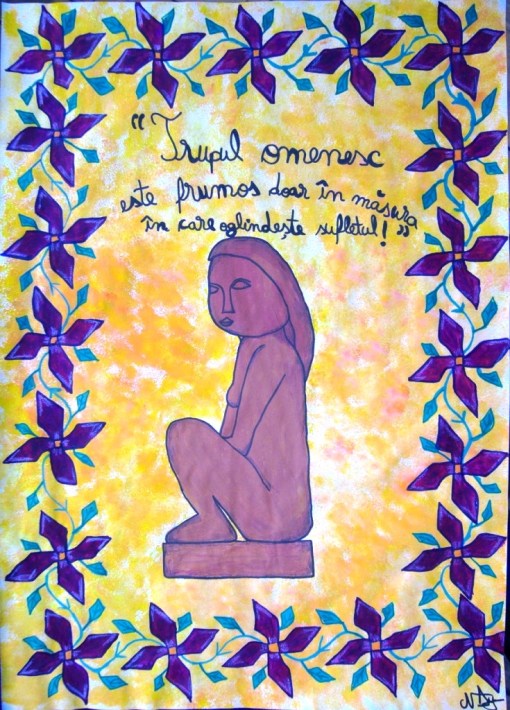 "Trupul omenesc
este frumos doar în măsura
în care oglindește sufletul!"